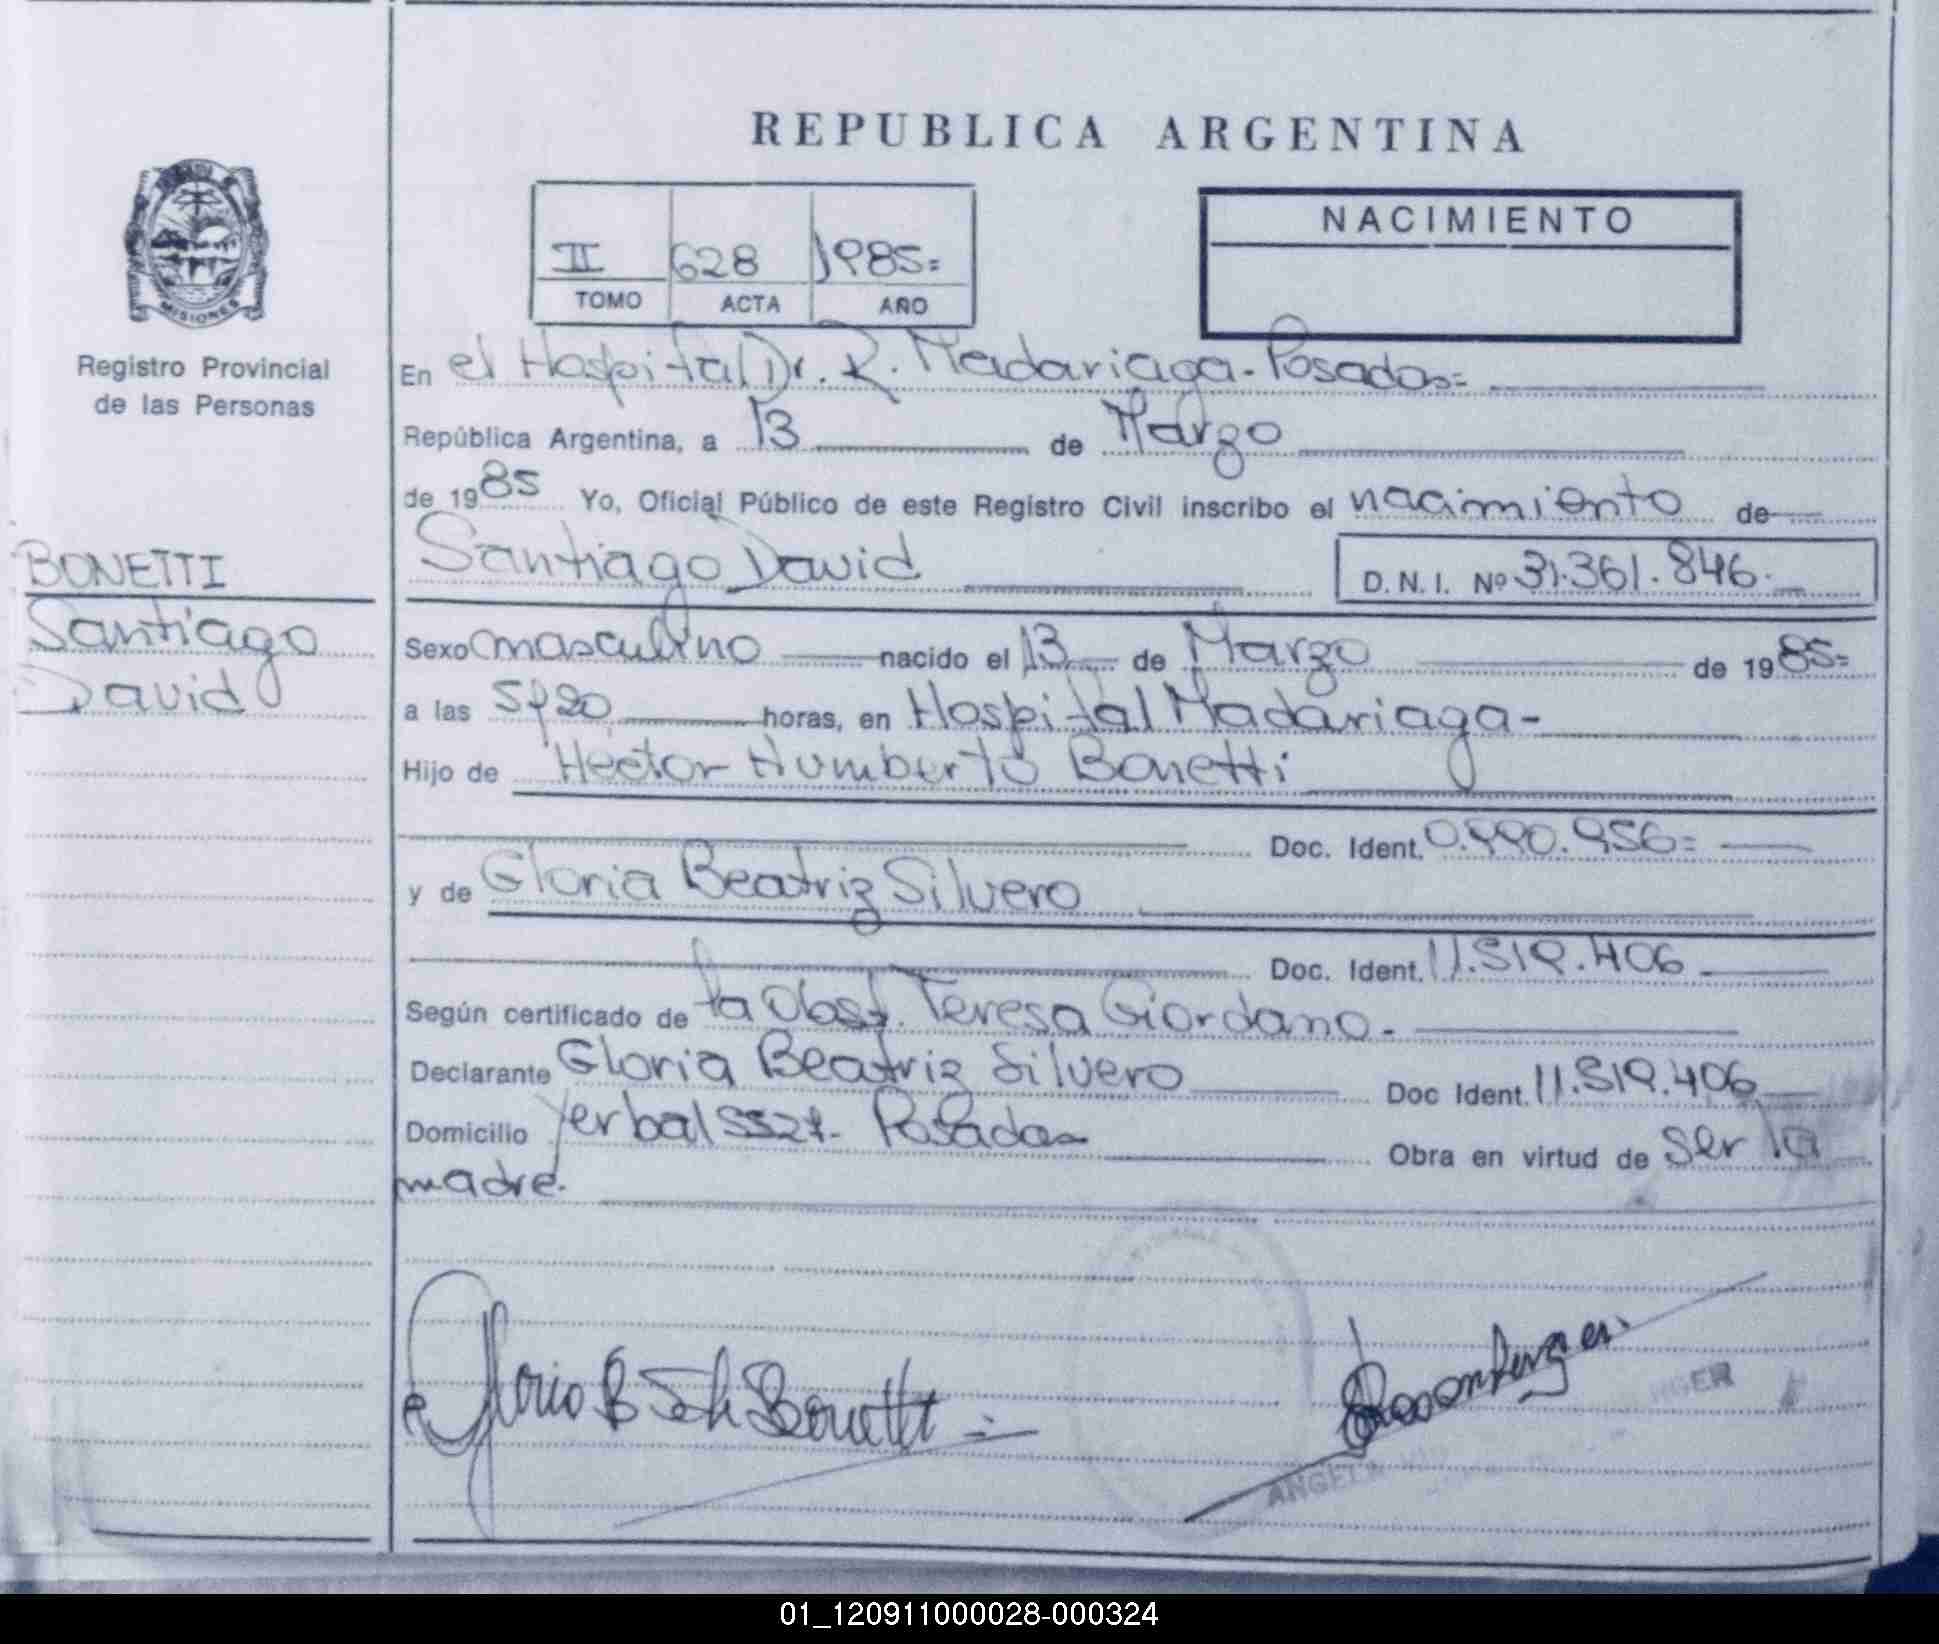 REPUBLICA ARGENTINA
MISIONES
Registro Provincial
de las Personas
BONETTI
Santiago
David
II 628 1985=
TOMO ACTA AÑO
NACIMIENTO
En el Hospital Dr. R. Madariaga - Posadas=
República Argentina, a 13 de Marzo
de 1985 Yo, Oficial Público de este Registro Civil inscribo el nacimiento de
Santiago David D.N.I. Nº 31.361.846.
Sexo masculino nacido el 13 de Marzo de 1985=
a las horas, en Hospital Madariaga-
Hijo de Héctor Humberto Bonetti
Doc. Ident.
y de Gloria Beatriz Silvero
Doc. Ident. 11.519.406
Según certificado de la Obst. Teresa Giordano.-
Declarante Gloria Beatriz Silvero Doc Ident. 11.519.406
Domicilio Yerbal Posadas Obra en virtud de ser la
madre.
Gloria B Bonetti
ANGELA
01_120911000028-000324